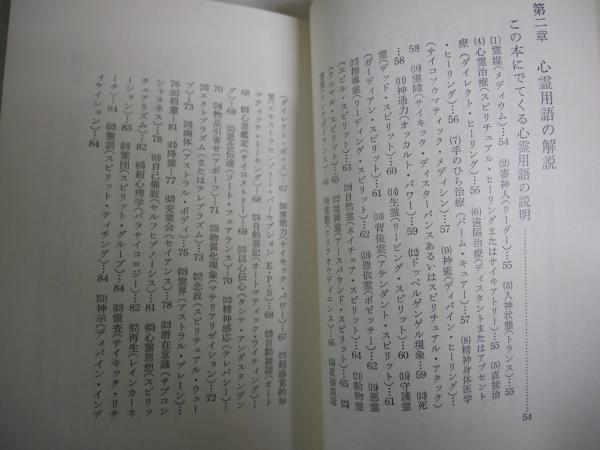 第二章　心霊用語の解説
この本にでてくる心霊用語の説明
54
(1)霊媒(メディウム)…54　(2)審神人(リーダー)…55　(3)入神状態(トランス)…55
(4)心霊治療(スピリチュアル・ヒーリングまたはサイキアトリー)…55　(5)直接治
療(ダイレクト・ヒーリング)…56　(6)遠隔治療(ディスタントまたはアブセント
・ヒーリング)…56　(7)手のひら治療(パーム・キュアー)…57　(8)精神身体医学
(サイコソウマティック・メディシン)…57　(9)神癒(ディバイン・ヒーリング)…
58　(10)霊障(サイキック・ディスターバンスあるいはスピリチュアル・アタック)
…58　(11)神通力(オッカルト・パワー)…59　(12)ドッペルゲンゲル現象…59　(13)死
霊(デッド・スピリット)…60　(14)生霊(リービング・スピリット)…60　(15)守護霊
(ガーディアン・スピリット)…61　(16)背後霊(アテンダント・スピリット)…61
(17)指導霊(リーディング・スピリット)…62　(18)憑依霊(ポゼッサー)…62　(19)悪霊
(エビル・スピリット)…63　(20)自然霊(ネイチュア・スピリット)…64　(21)動物霊
(アニマル・スピリット)…65　(22)地縛霊(アースバウンド・スピリット)…65
…66　霊聴(クリアオウディエンス)…66　直接談話
(ダイレクト・ボイス)…67　霊能力(サイキック・パワー)…67　超感覚的知
覚(エキストラセンソリー・パーセプション E・P・S)…68　自動談話(オート
マティック・トーキング)…68　自動書記(オートマティック・ライティング)…
68　心霊鑑定(サイコメトリー)…69　以心伝心(タシテ・アンダスタンデ
ング)…69　思念伝達(ソート・フェアランス)…70　精神感応(テレパシー)…
70　物品引寄せ(アポーツ)…71　物質化現象(マテリアリゼイション)…72
エクトプラズム(またはテレプラズム)…73　念波(スピリチュアル・ウェー
ブ)…73　幽体(アストラル・ボディ)…75　霊界(アストラル・プレーン)…
76　招霊…77　降霊…77　交霊会(セイアンス)…78　潜在意識(サブコン
シャスネス)…78　自己催眠(セルフヒプノーシス)…81　心霊思想(スピリッ
チュアリズム)…82　超心理学(パラサイコロジー)…82　再生(レインカーネ
ーション)…83　霊団(スピリット・グループ)…84　霊査(サイキック・リサ
ーチ)…84　霊訓(スピリット・ティチング)…84　神示(ディバイン・インデ
ィケイション)…84